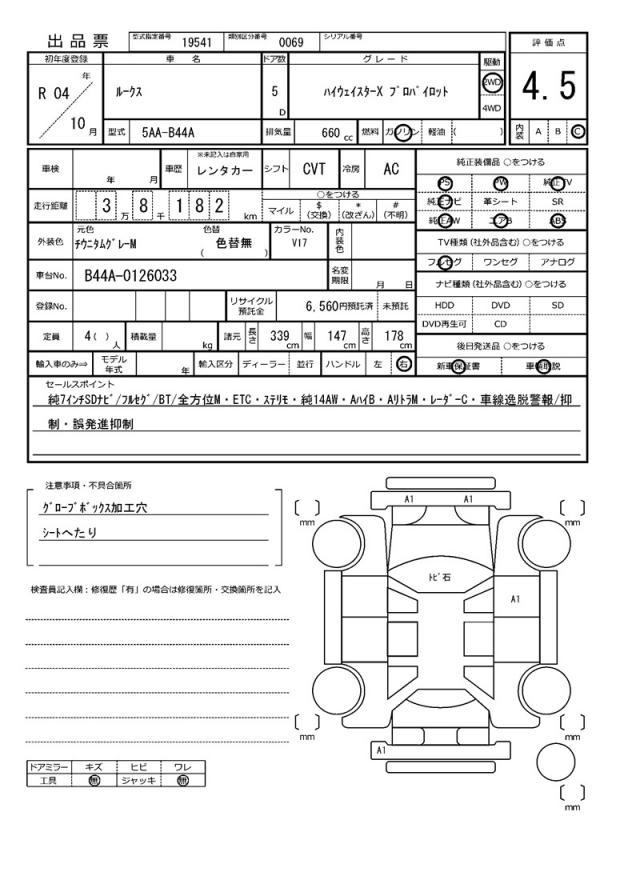 出品票 型式指定番号 19541 類別区分番号 0069 シリアル番号
初年度登録 車名 ドア数 グレード 駆動 評価点
R 04 年 10 月 ルークス 5 D ハイウェイスターX プロパイロット 2WD 4WD 4.5
型式 5AA-B44A 排気量 660 cc 燃料 ガソリン 軽油 ( ) 内装 A B C
車検 年 月 車歴 ※未記入は自家用 レンタカー シフト CVT 冷房 AC
走行距離 3 万 8 千 1 8 2 km ○をつける マイル $ (交換) * (改ざん) # (不明)
外装色 元色 チタニウムグレーM 色替 色替無 ( ) カラーNo. V17 内装色
車台No. B44A-0126033 名変期限 月 日
登録No. リサイクル預託金 6,560円預託済 未預託
定員 4( ) 人 積載量 kg 諸元 長さ 339 cm 幅 147 cm 高さ 178 cm
輸入車のみ⇒ モデル年式 年 輸入区分 ディーラー 並行 ハンドル 左 右
純正装備品 ○をつける
PS PW 純正TV
純正ナビ 革シート SR
純正AW エアB ABS
TV種類 (社外品含む) ○をつける
フルセグ ワンセグ アナログ
ナビ種類 (社外品含む) ○をつける
HDD DVD SD
DVD再生可 CD
後日発送品 ○をつける
新車保証書 車輌取説
セールスポイント
純7インチSDナビ/フルセグ/BT/全方位M・ETC・ステリモ・純14AW・AハイB・AリトラM・レーダーC・車線逸脱警報/抑
制・誤発進抑制
注意事項・不具合箇所
グローブボックス加工穴
シートへたり
検査員記入欄：修復歴「有」の場合は修復箇所・交換箇所を記入
ドアミラー キズ ヒビ ワレ
工具 無 ジャッキ 無
A1 A1
[ ] mm [ ] mm
トビ石
A1
[ ] mm [ ] mm
A1
[ ] mm